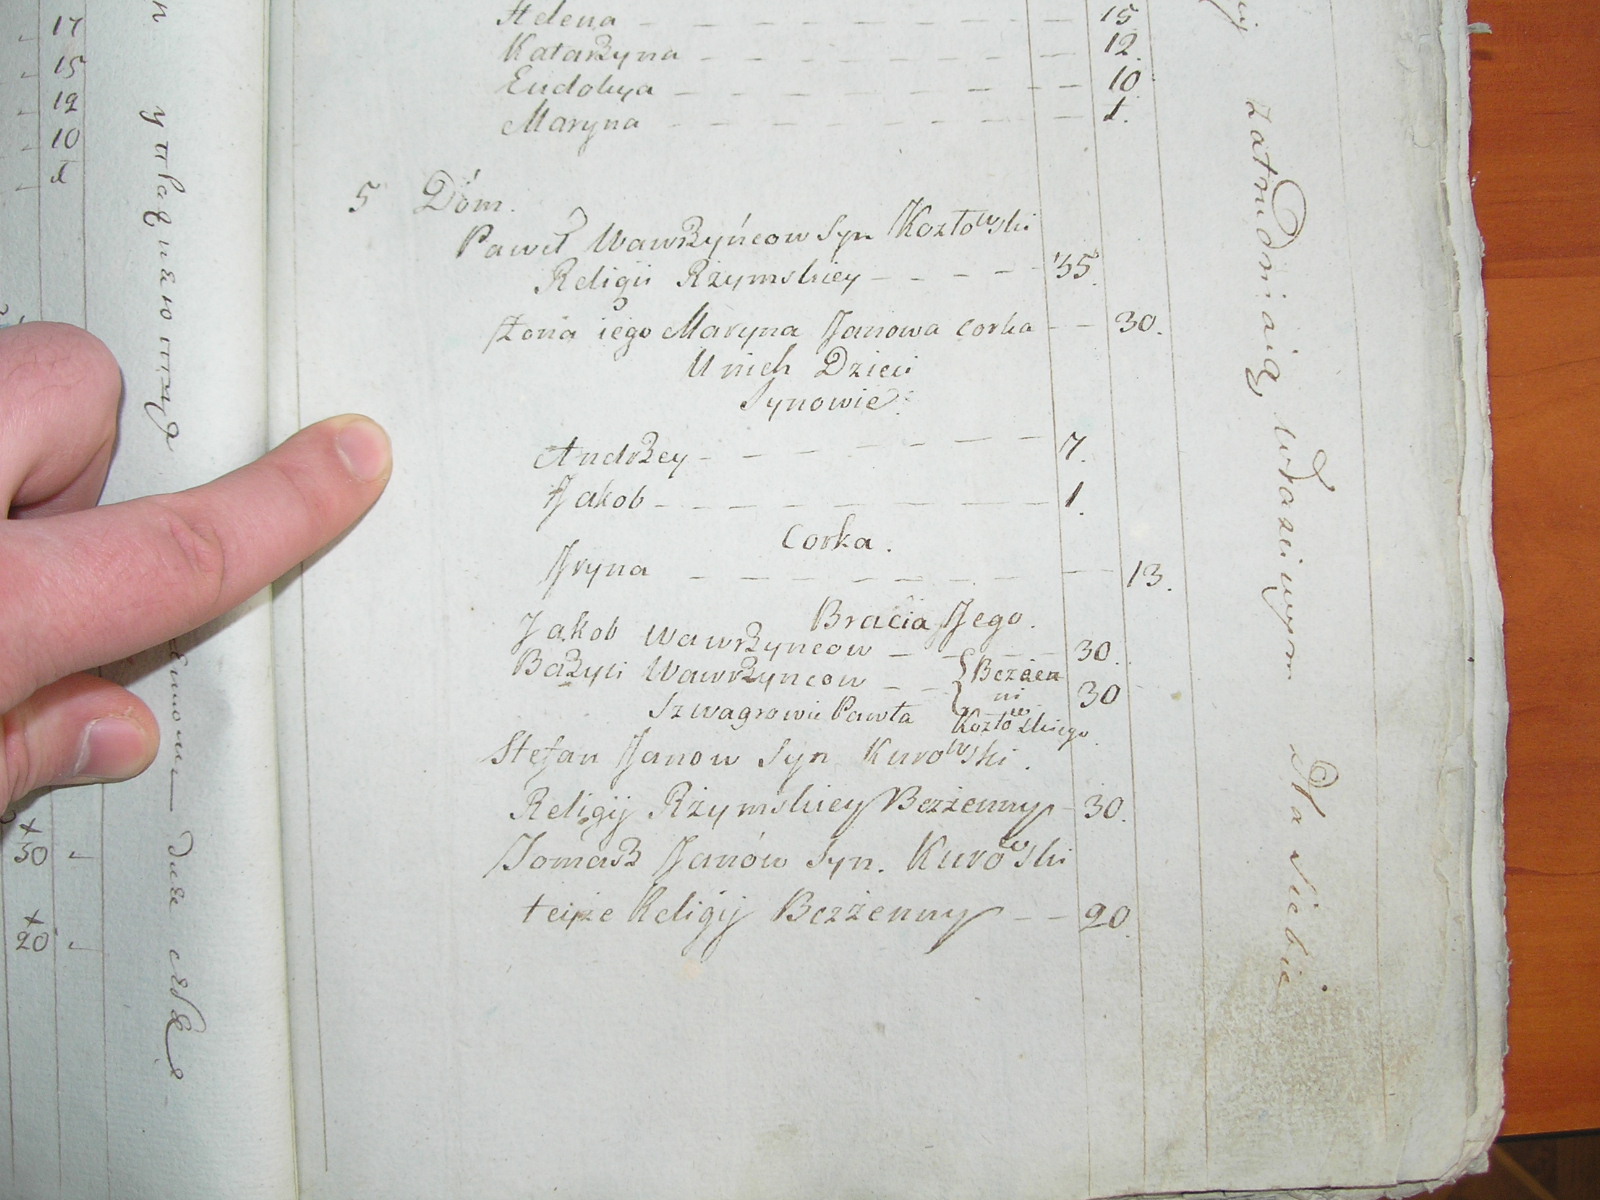 17
15
12
10
1
30
20
Helena 15
Katarzyna 12.
Eudokya 10
Maryna 1.
5 Dóm.
Paweł Wawrzyńcow Syn Kozłowski
Religii Rżymskiey 35.
Żona iego Maryna Janowa corka 30.
U nich Dzieci
Synowie:
Andrzey 7.
Jakob 1.
Corka.
Jryna 13.
Bracia Jego.
Jakob Wawrzyncow 30.
Bazyli Wawrzyncow { Bezżen
ni 30
Szwagrowie Pawła Kozłowskiego
Stefan Janow Syn Kurowski.
Religij Rżymskiey Bezżenny 30.
Tomasz Janów Syn. Kurowski
teiże Religij Bezżenny 20.
zatrudniaią własciwym Dla siebie